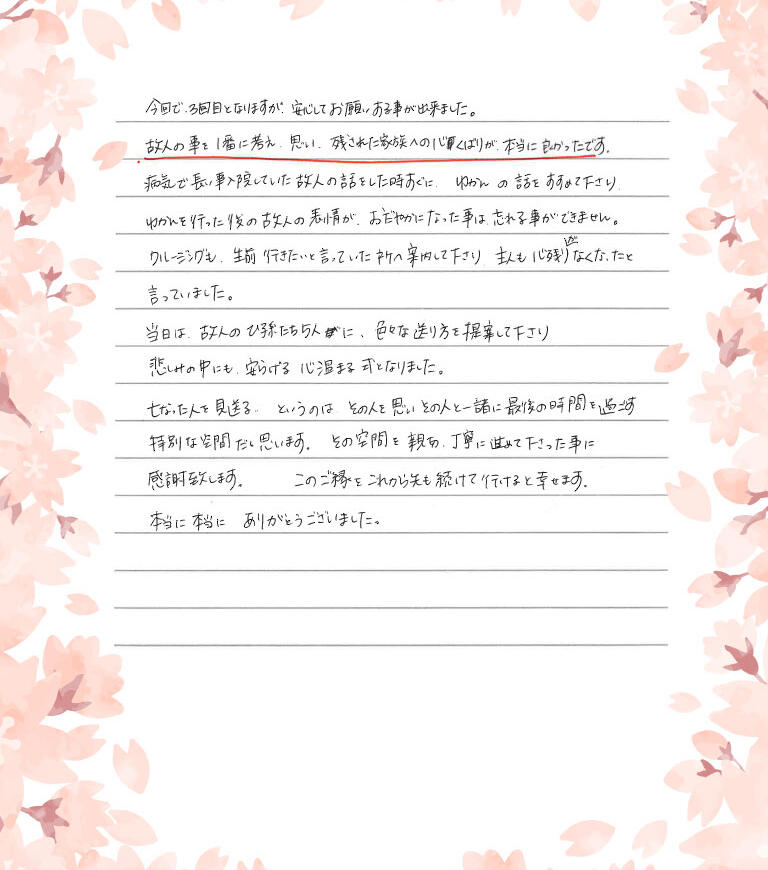 今回で、3回目となりますが、安心してお願いする事が出来ました。
故人の事を1番に考え、思い、残された家族への心くばりが、本当に良かったです。
病気で長い事入院していた故人の話をした時すぐに、ゆかんの話をすすめて下さり、
ゆかんを行った後の故人の表情が、おだやかになった事は、忘れる事ができません。
クルージングも、生前行きたいと言っていた所へ案内して下さり、主人も心残りがなくなったと
言っていました。
当日は、故人のひ孫たち5人に、色々な送り方を提案して下さり
悲しみの中にも、安らげる心温まる式となりました。
亡なった人を見送る、というのは、その人を思いその人と一緒に最後の時間を過ごす
特別な空間だと思います。その空間を親切、丁寧に進めて下さった事に
感謝致します。 このご縁をこれから先も続けて行けると幸せます。
本当に本当に ありがとうございました。